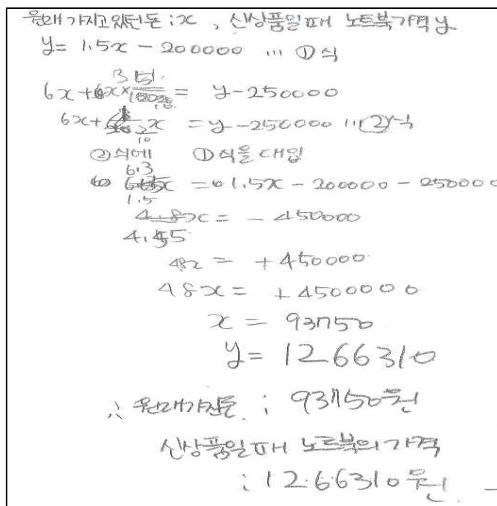 원래 가지고 있던 돈 : x , 신상품일 때 노트북 가격 y
y = 1.5x - 200000 … ① 식
6x + = y - 250000
6x + x = y - 250000 … ② 식
②식에 ①식을 대입
6.3
= 1.5x - 200000 - 250000
1.5
4.8x = - 450000
4.45
48x = + 450000
48x = + 4500000
x = 93750
y = 1266310
∴ 원래가진돈 : 93750원
신상품일 때 노트북의 가격
: 1266310원